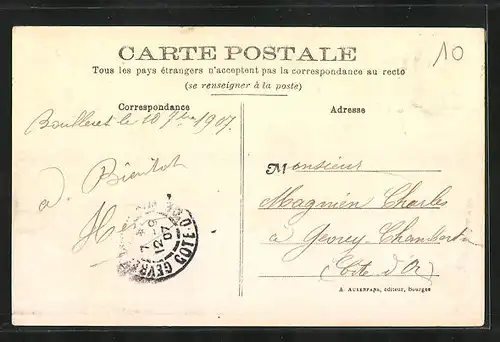 CARTE POSTALE
10
Tous les pays étrangers n'acceptent pas la correspondance au recto
(se renseigner à la poste)
Correspondance
Adresse
Boulleret le 10 7bre 1907.
à Bientôt
Monsieur
Magnien Charles
à Gevrey-Chambertin
(Côte d'Or)
GEVREY
CÔTE-D'O
7
12
07
A. AUXENFANS, éditeur, Bourges